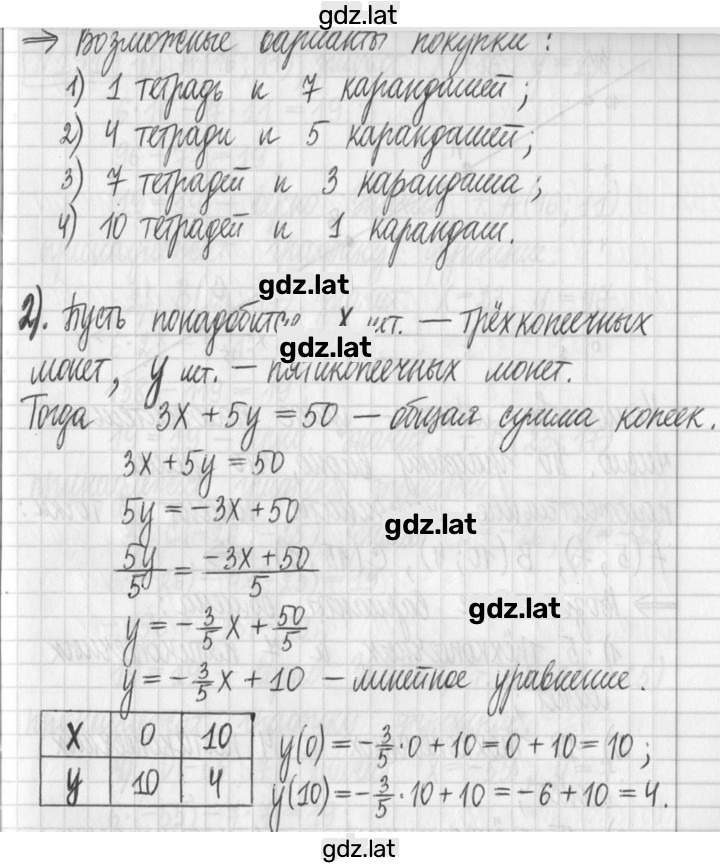 gdz.lat
⇒ Возможные варианты покупки:
1) 1 тетрадь и 7 карандашей;
2) 4 тетради и 5 карандашей;
3) 7 тетрадей и 3 карандаша;
4) 10 тетрадей и 1 карандаш.
gdz.lat
2). Пусть понадобится x шт. — трёхкопеечных
gdz.lat
монет, y шт. — пятикопеечных монет.
Тогда 3x + 5y = 50 — общая сумма копеек.
3x + 5y = 50
5y = -3x + 50
gdz.lat
5y/5 = (-3x + 50)/5
gdz.lat
y = -3/5 x + 50/5
y = -3/5 x + 10 — линейное уравнение.
x 0 10 y(0) = -3/5 · 0 + 10 = 0 + 10 = 10;
y 10 4 y(10) = -3/5 · 10 + 10 = -6 + 10 = 4.
gdz.lat